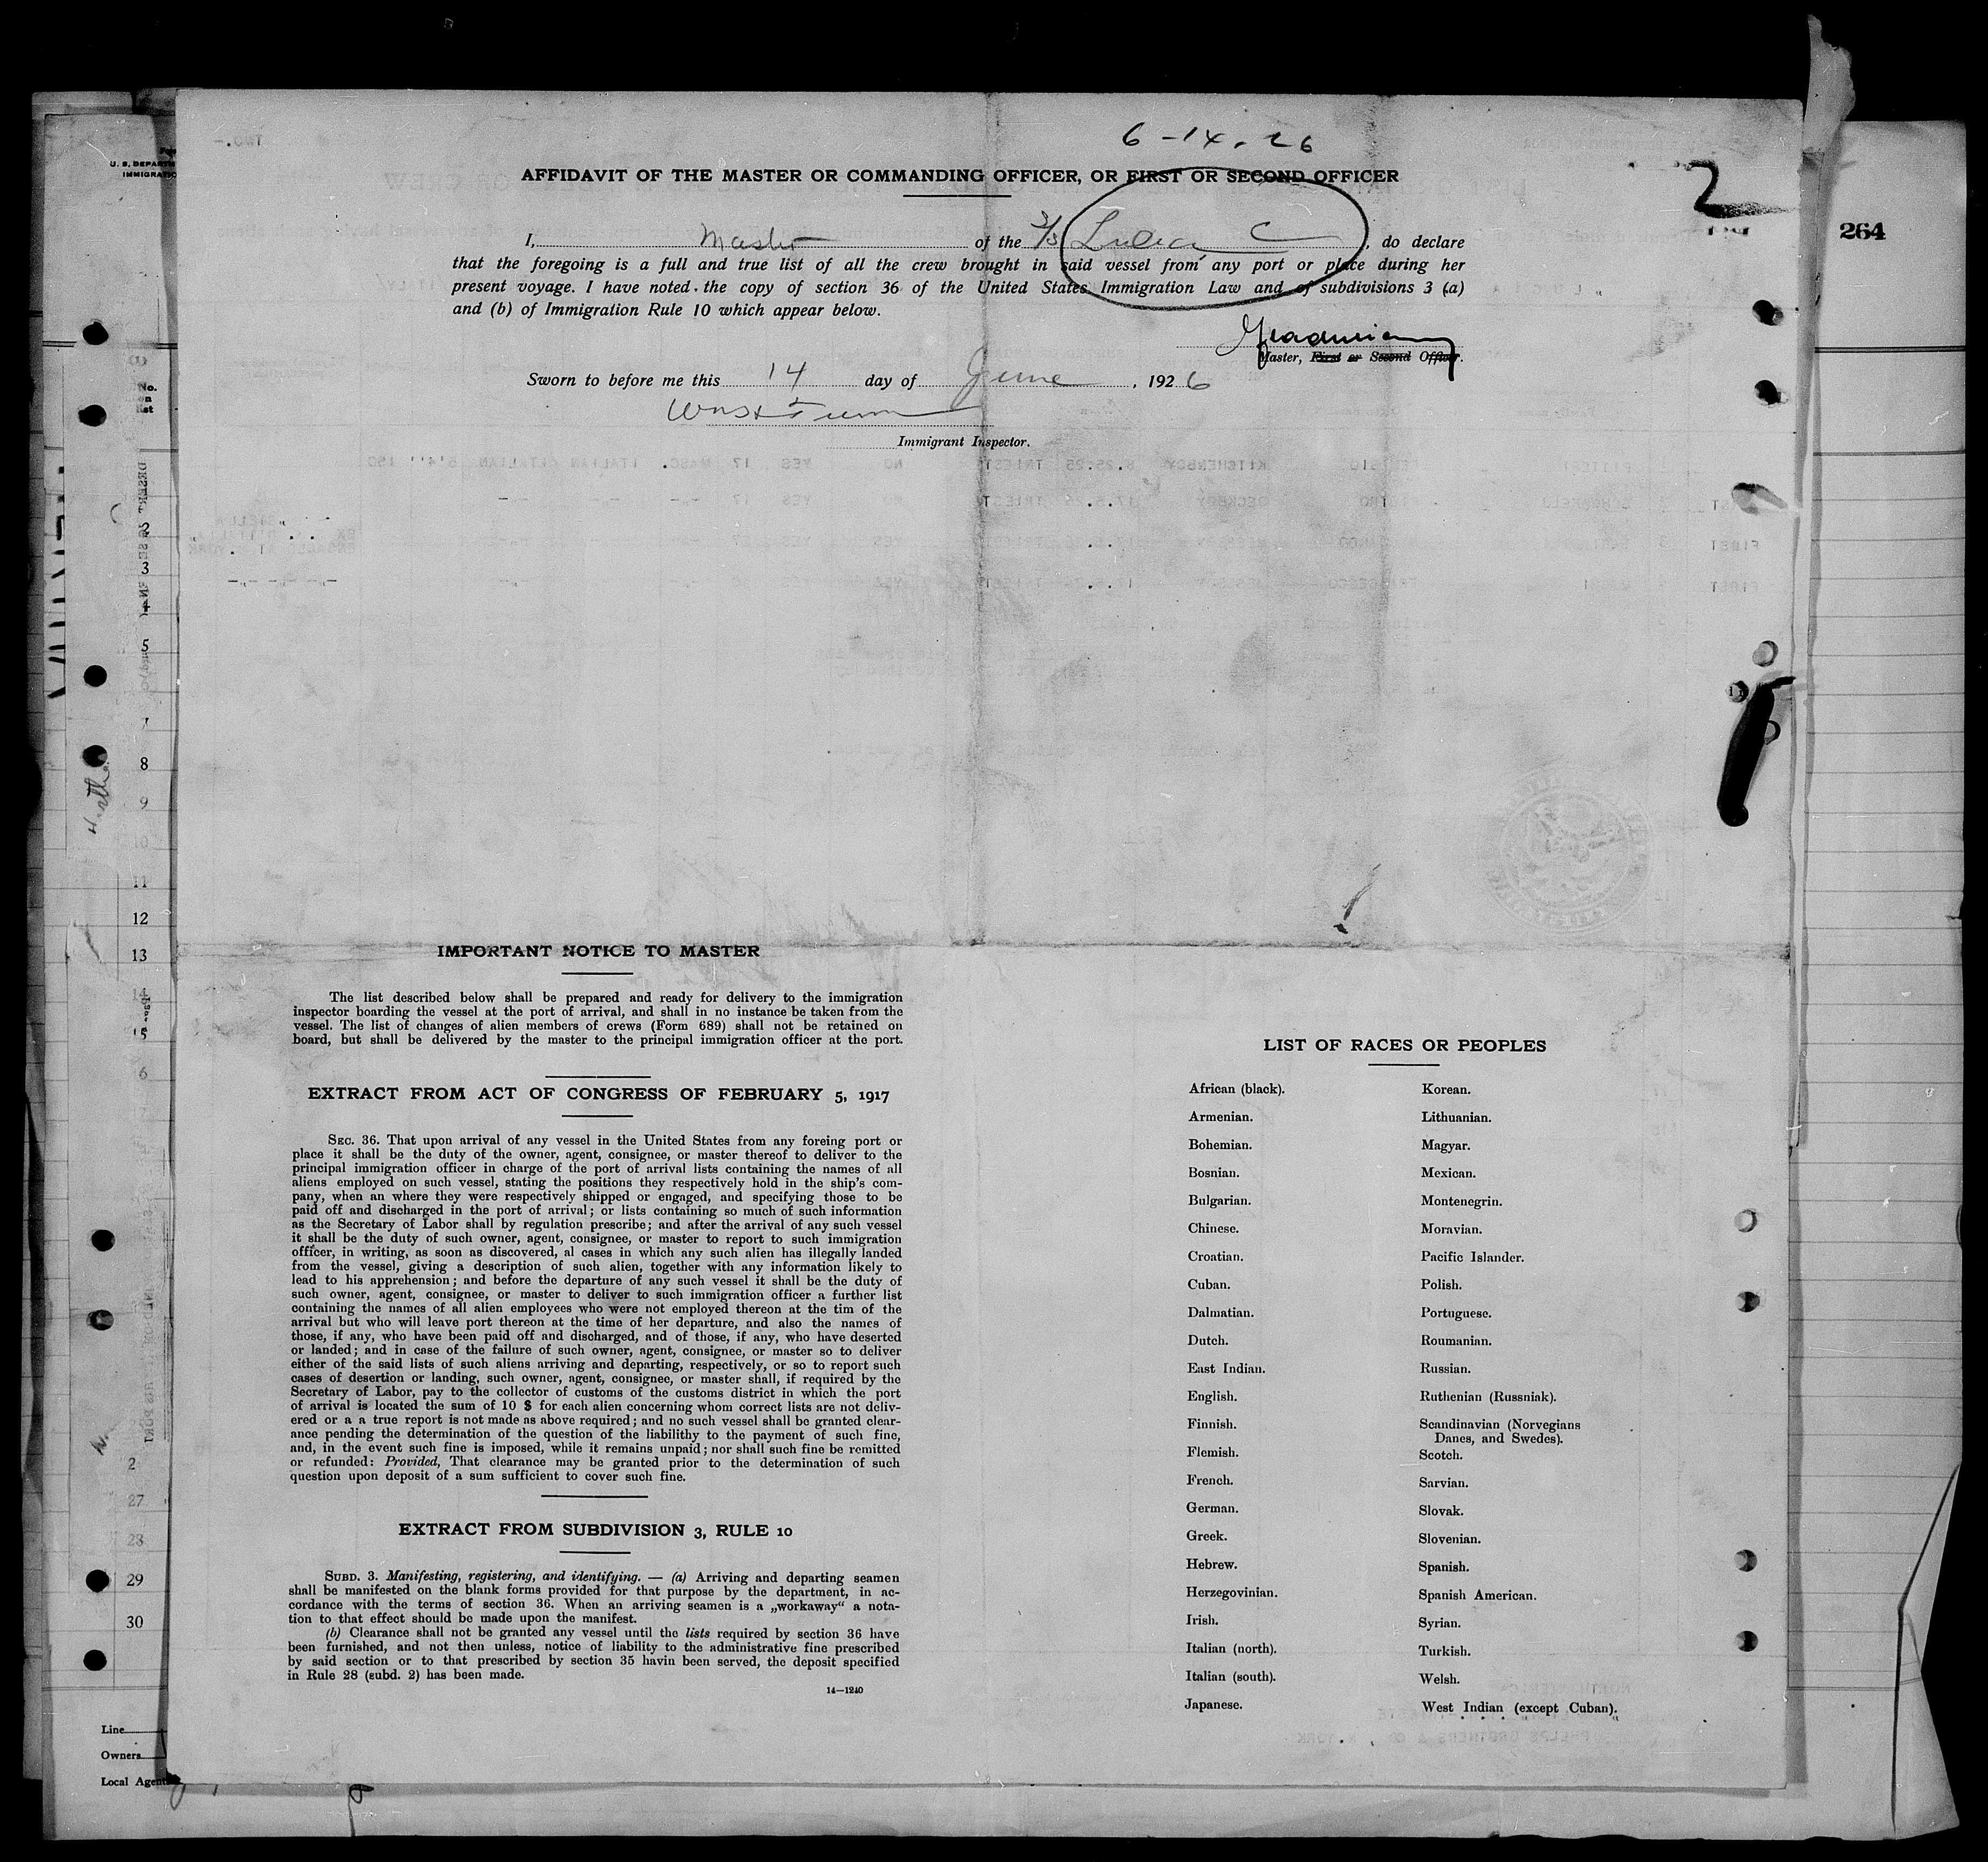 6-14-26
AFFIDAVIT OF THE MASTER OR COMMANDING OFFICER, OR FIRST OR SECOND OFFICER
2
264
I, Master of the S/S Lucia C, do declare
that the foregoing is a full and true list of all the crew brought in said vessel from any port or place during her
present voyage. I have noted the copy of section 36 of the United States Immigration Law and of subdivisions 3 (a)
and (b) of Immigration Rule 10 which appear below.
Master, First or Second Officer.
Sworn to before me this 14 day of June, 1926
Immigrant Inspector.
IMPORTANT NOTICE TO MASTER
The list described below shall be prepared and ready for delivery to the immigration
inspector boarding the vessel at the port of arrival, and shall in no instance be taken from the
vessel. The list of changes of alien members of crews (Form 689) shall not be retained on
board, but shall be delivered by the master to the principal immigration officer at the port.
EXTRACT FROM ACT OF CONGRESS OF FEBRUARY 5, 1917
SEC. 36. That upon arrival of any vessel in the United States from any foreing port or
place it shall be the duty of the owner, agent, consignee, or master thereof to deliver to the
principal immigration officer in charge of the port of arrival lists containing the names of all
aliens employed on such vessel, stating the positions they respectively hold in the ship's com-
pany, when an where they were respectively shipped or engaged, and specifying those to be
paid off and discharged in the port of arrival; or lists containing so much of such information
as the Secretary of Labor shall by regulation prescribe; and after the arrival of any such vessel
it shall be the duty of such owner, agent, consignee, or master to report to such immigration
officer, in writing, as soon as discovered, al cases in which any such alien has illegally landed
from the vessel, giving a description of such alien, together with any information likely to
lead to his apprehension; and before the departure of any such vessel it shall be the duty of
such owner, agent, consignee, or master to deliver to such immigration officer a further list
containing the names of all alien employees who were not employed thereon at the tim of the
arrival but who will leave port thereon at the time of her departure, and also the names of
those, if any, who have been paid off and discharged, and of those, if any, who have deserted
or landed; and in case of the failure of such owner, agent, consignee, or master so to deliver
either of the said lists of such aliens arriving and departing, respectively, or so to report such
cases of desertion or landing, such owner, agent, consignee, or master shall, if required by the
Secretary of Labor, pay to the collector of customs of the customs district in which the port
of arrival is located the sum of 10 $ for each alien concerning whom correct lists are not deliv-
ered or a a true report is not made as above required; and no such vessel shall be granted clear-
ance pending the determination of the question of the liabilithy to the payment of such fine,
and, in the event such fine is imposed, while it remains unpaid; nor shall such fine be remitted
or refunded: Provided, That clearance may be granted prior to the determination of such
question upon deposit of a sum sufficient to cover such fine.
EXTRACT FROM SUBDIVISION 3, RULE 10
SUBD. 3. Manifesting, registering, and identifying. — (a) Arriving and departing seamen
shall be manifested on the blank forms provided for that purpose by the department, in ac-
cordance with the terms of section 36. When an arriving seamen is a „workaway“ a nota-
tion to that effect should be made upon the manifest.
(b) Clearance shall not be granted any vessel until the lists required by section 36 have
been furnished, and not then unless, notice of liability to the administrative fine prescribed
by said section or to that prescribed by section 35 havin been served, the deposit specified
in Rule 28 (subd. 2) has been made.
14—1240
LIST OF RACES OR PEOPLES
African (black).
Armenian.
Bohemian.
Bosnian.
Bulgarian.
Chinese.
Croatian.
Cuban.
Dalmatian.
Dutch.
East Indian.
English.
Finnish.
Flemish.
French.
German.
Greek.
Hebrew.
Herzegovinian.
Irish.
Italian (north).
Italian (south).
Japanese.
Korean.
Lithuanian.
Magyar.
Mexican.
Montenegrin.
Moravian.
Pacific Islander.
Polish.
Portuguese.
Roumanian.
Russian.
Ruthenian (Russniak).
Scandinavian (Norvegians
Danes, and Swedes).
Scotch.
Sarvian.
Slovak.
Slovenian.
Spanish.
Spanish American.
Syrian.
Turkish.
Welsh.
West Indian (except Cuban).
No.
on
list
2
3
4
5
8
9
10
11
12
13
14
15
27
28
29
30
Line
Owners
Local Agent